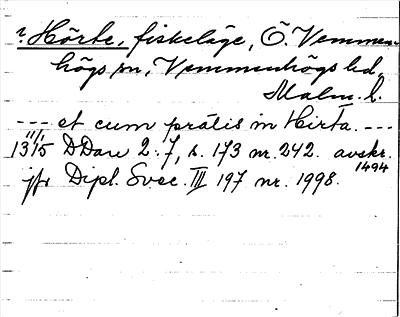 ? Hörte, fiskeläge, Ö. Vemmen-
högs sn, Vemmenhögs hd,
Malm. l.
--- et cum pratis in Hirta. ---
11/1
1315 DDan 2:7, s. 173 nr. 242. avskr.
1494
jfr Dipl. Svec. III 197 nr. 1998.